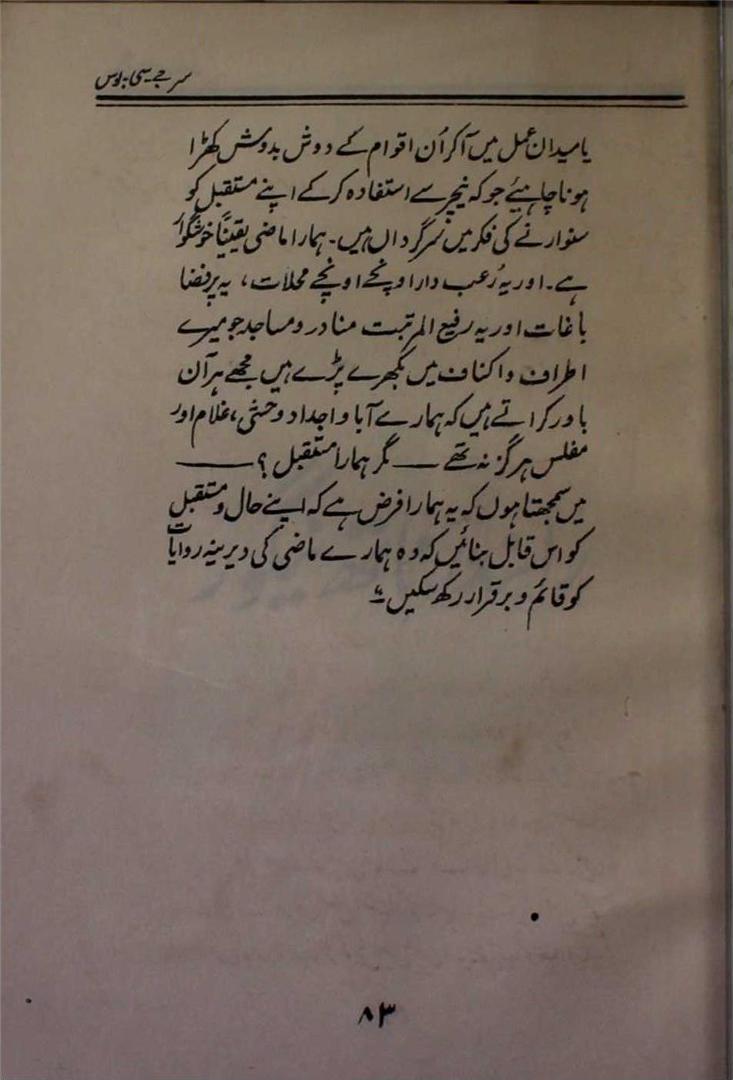 سر جے سی بوس
یا میدان عمل میں آکر اُن اقوام کے دوش بدوش کھڑا
ہونا چاہیئے جو کہ نیچر سے استفادہ کرکے اپنے مستقبل کو
سنوارنے کی فکر میں سرگرداں ہیں۔ ہمارا ماضی یقیناً خوشگوار
ہے۔ اور یہ رُعب دار اونچے اونچے محلات، یہ پرفضا
باغات اور یہ رفیع المرتبت منادر و مساجد جو میرے
اطراف و اکناف میں بکھرے پڑے ہیں مجھے ہر آن
باور کراتے ہیں کہ ہمارے آبا و اجداد وحشی، غلام اور
مفلس ہرگز نہ تھے ــــ مگر ہمارا مستقبل ؟ ــــــ
میں سمجھتا ہوں کہ یہ ہمارا فرض ہے کہ اپنے حال و مستقبل
کو اس قابل بنائیں کہ وہ ہمارے ماضی کی دیرینہ روایات
کو قائم و برقرار رکھ سکیں ؎
۸۳